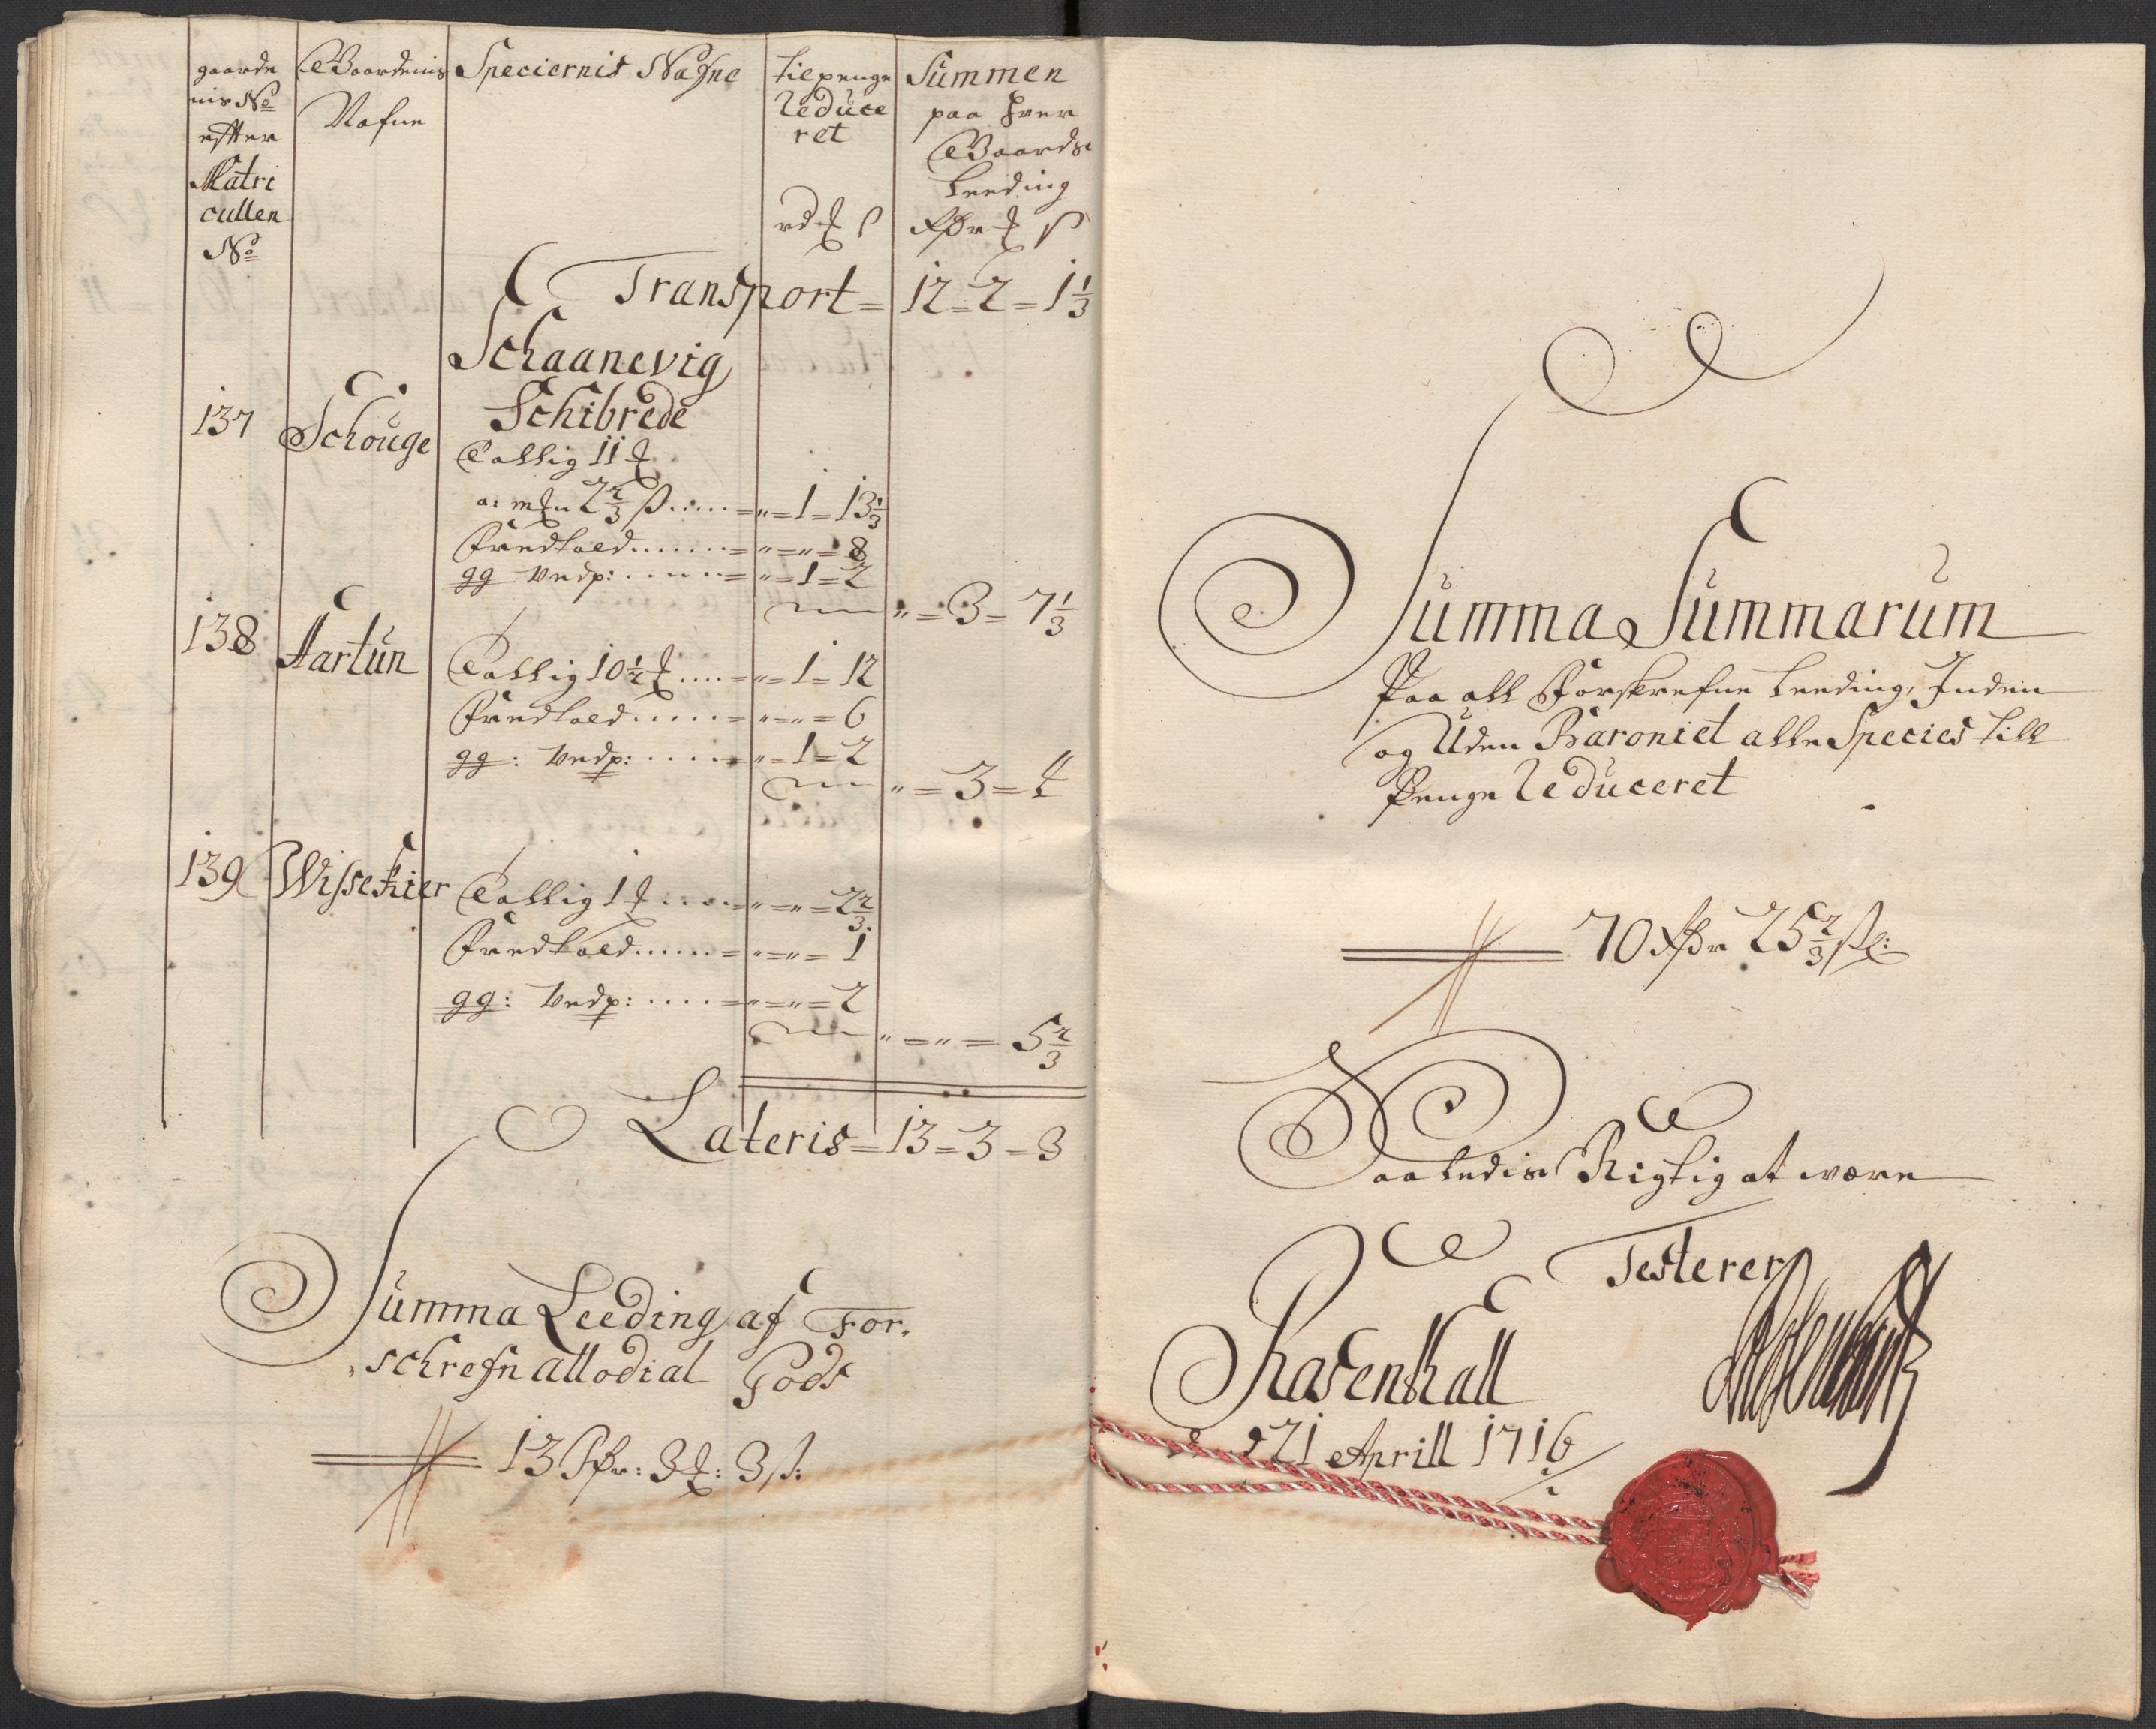 gaarde
nis No
efter
Matri
cullen
No
Gaardenis
Nafne
Speciernis Nafne
til penge
Reduce
ret
rd ƺ ß
Summen
paa hver
Gaards
Leeding
Rdr ƺ ß
Transport = 12 = 2 = 1 1/3
Schaanevig
Schibrede
137 Schouge Callig 11 ƺ
a: 2 2/3 ß ..... = " = 1 = 13 1/3
Fredtold ...... = " = " = 8
gg Vedp: ..... = " = 1 = 2
" = 3 = 7 1/3
138 Aartun Callig 10 1/2 ƺ .... = " = 1 = 12
Fredtold ..... = " = " = 6
gg: Vedp: ..... = " = 1 = 2
" = 3 = 4
139 Wissekier Callig 1 ƺ .... = " = " = 2 2/3
Fredtold ..... = " = " = 1
gg: Vedp: .... = " = " = 2
" = " = 5 2/3
Lateris = 13 = 3 = 3
Summa Leeding af For
schrefn allodial Gods
13 Rdr: 3 ƺ: 3 ß:
Summa Summarum
Paa all Forskrefne Leeding, Inden
og Uden Baroniet alle Species till
Penge Reduceret
70 Rdr 25 2/3 ßl:
Saaledis Rigtig at være
Testerer
Rosenthall
d 21 Aprill 1716